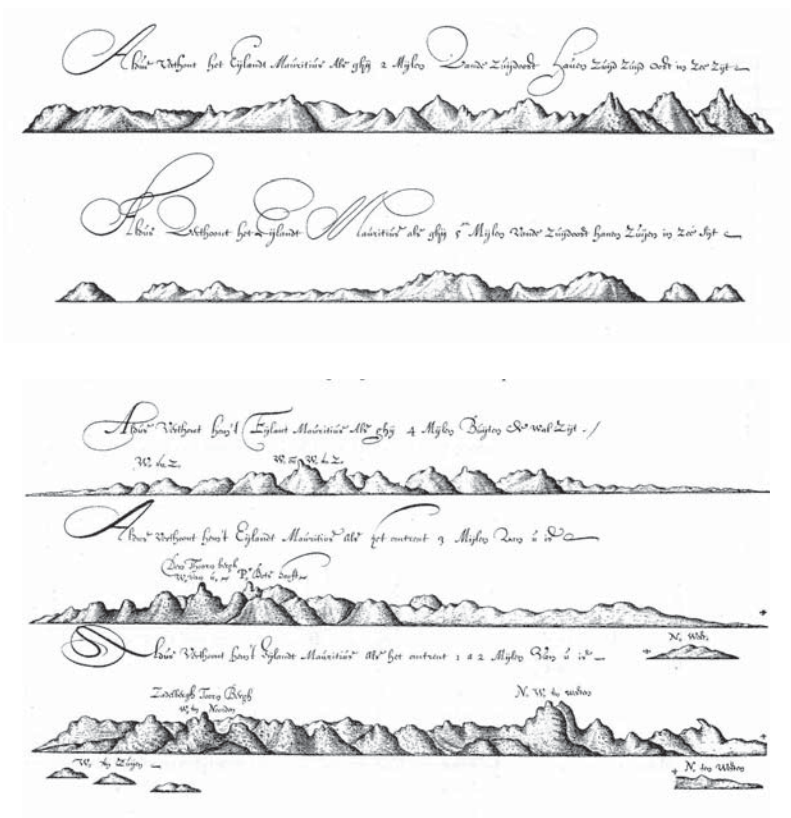 Aldus Verthont het Eylandt Mauritius Als ghij 2 Mylen Vande Zuydoost Haven Zuyd Zuyd Oost in Zee Zyt
Aldus Verthoont het Eylandt Mauritius als ghij 5 Mylen Vande Zuydoost haven Zuyen in Zee Syt
Aldus Verthont hem't Eylant Mauritius Als ghij 4 Mylen Buyten de wal Zyt
W. ten Z.
Aldus Verthoont hem't Eylandt Mauritius Als het omtrent 3 Mylen Van u is
Den Thoorn bergh
W. van u. Pr. Bots hooft
Aldus Verthoont hem't Eylandt Mauritius Als het omtrent 1 a 2 Mylen Van u is
N. West.
Zadelbergh Toorn Bergh
W. ten Noorden
N. W. ten westen
W. ten Zuyen
N. ten Westen